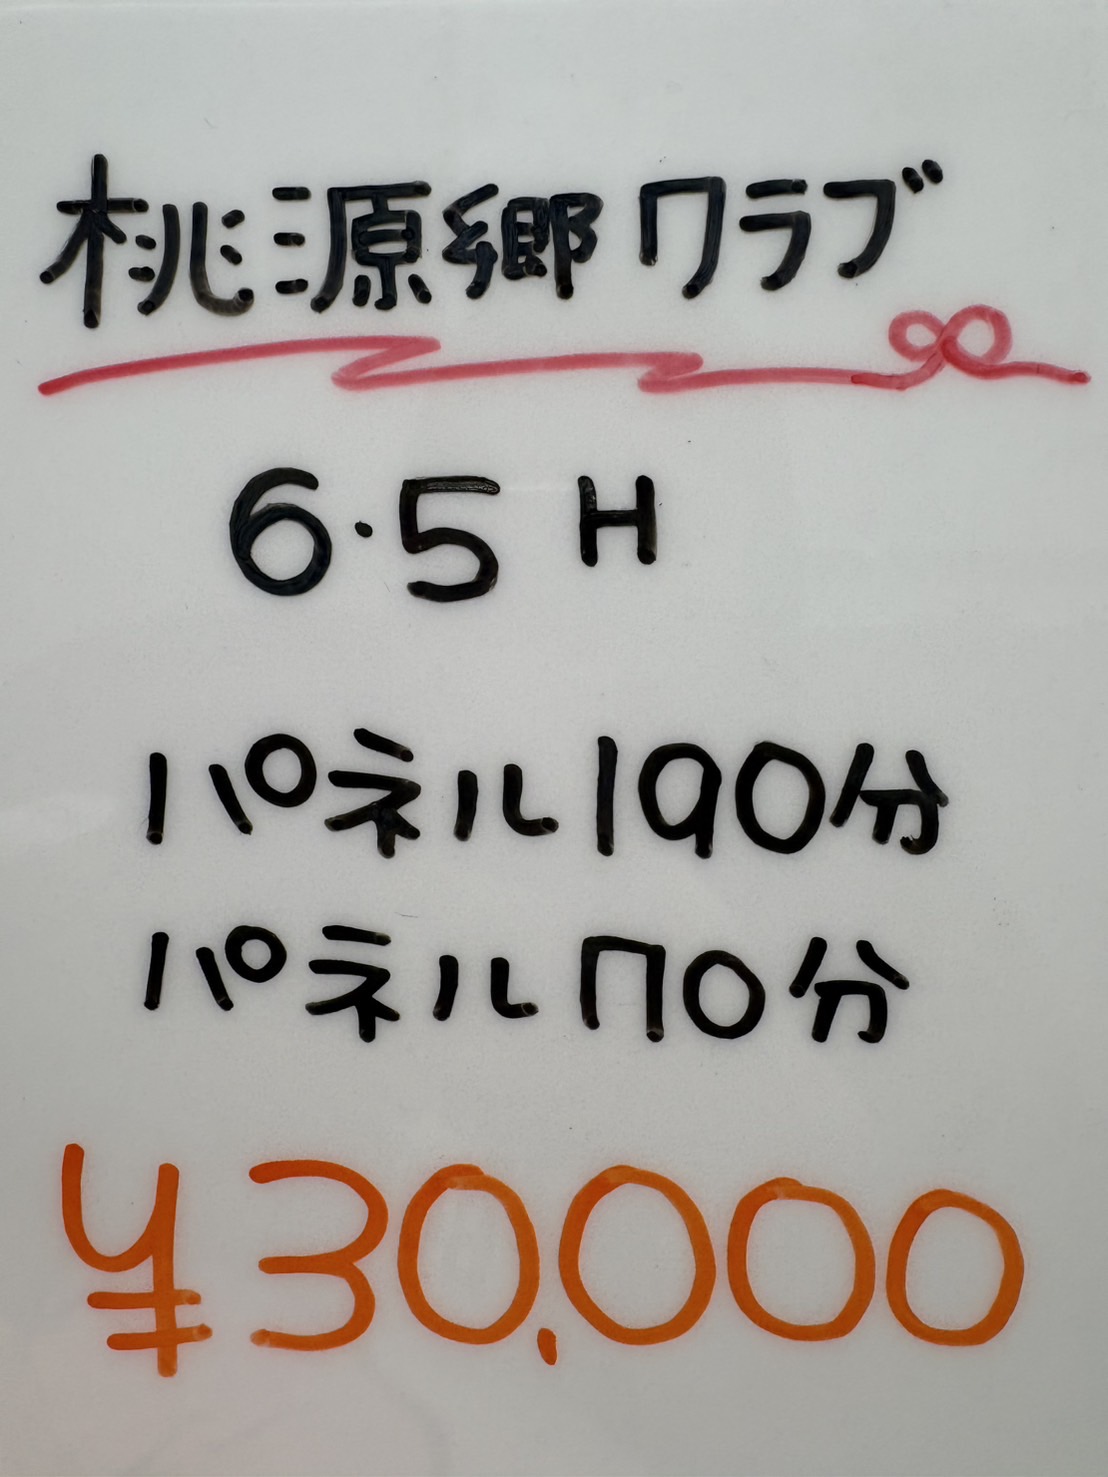 桃源郷クラブ
6.5H
パネル190分
パネル70分
¥30,000